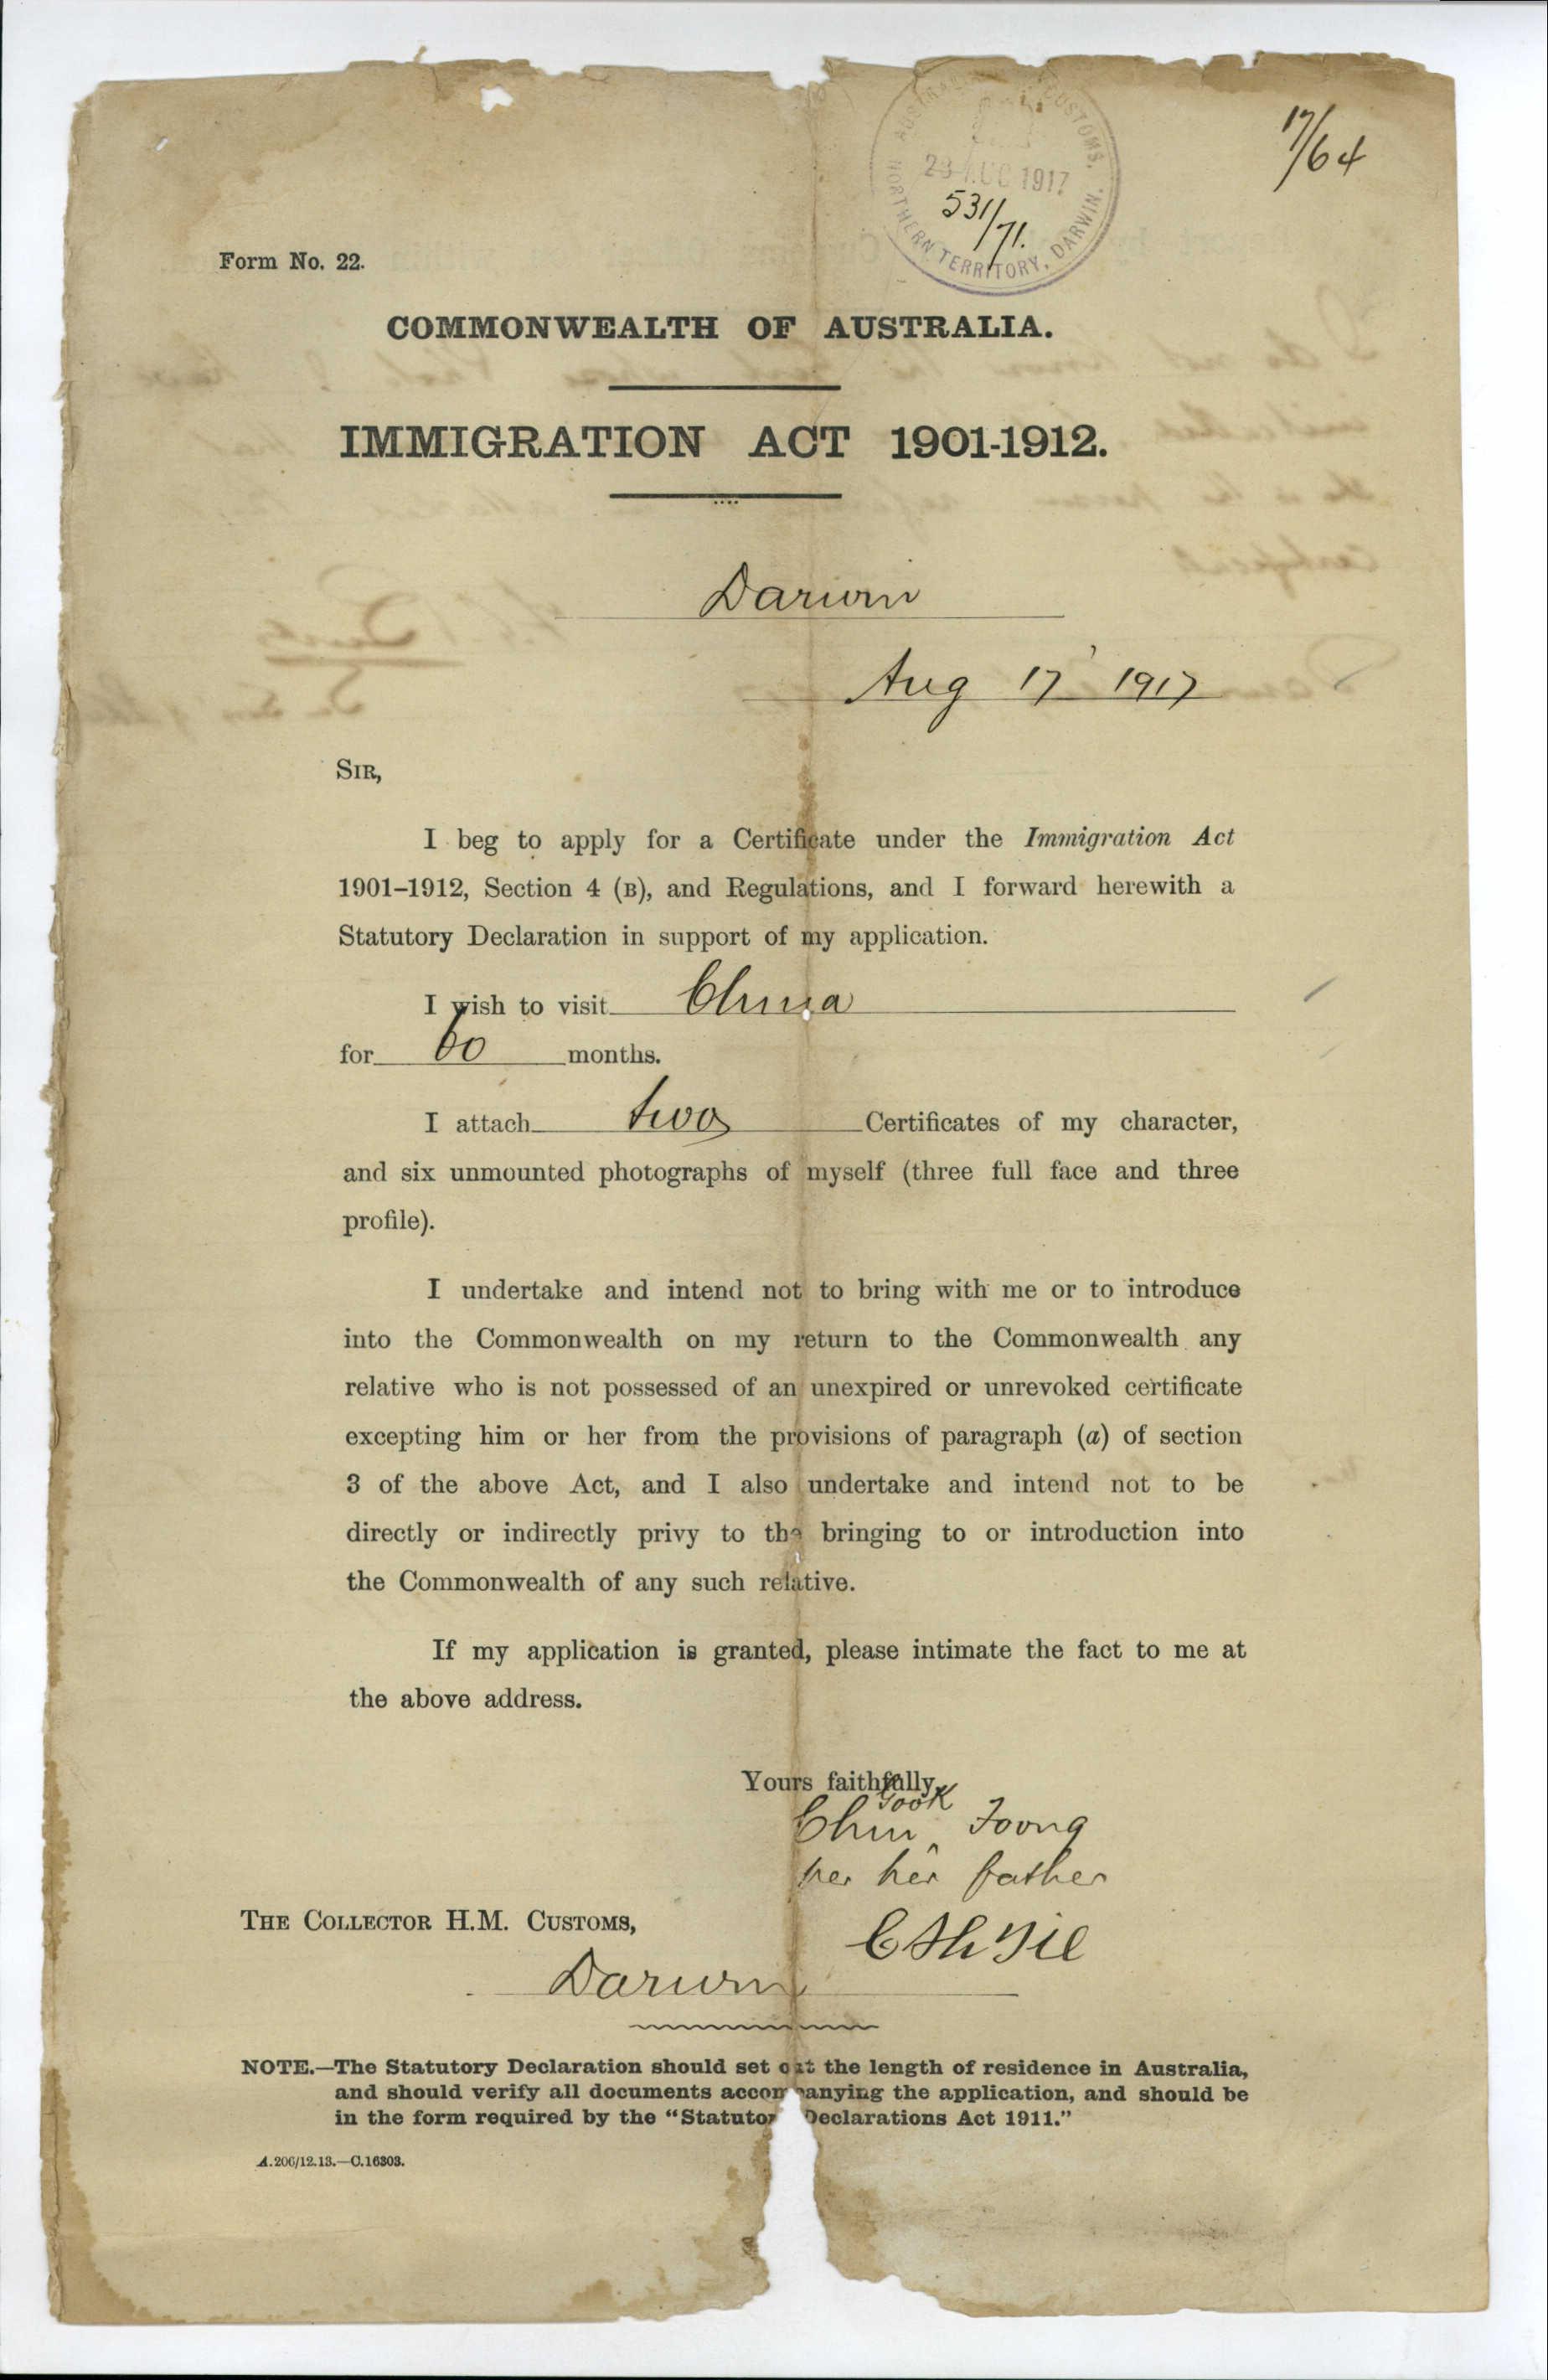 17/64
AUSTRALIA CUSTOMS.
23 AUG 1917
531/71.
NORTHERN TERRITORY, DARWIN.
Form No. 22.
COMMONWEALTH OF AUSTRALIA.
IMMIGRATION ACT 1901-1912.
Darwin
Aug 17 1917
SIR,
I beg to apply for a Certificate under the Immigration Act
1901–1912, Section 4 (B), and Regulations, and I forward herewith a
Statutory Declaration in support of my application.
I wish to visit China
for 60 months.
I attach two Certificates of my character,
and six unmounted photographs of myself (three full face and three
profile).
I undertake and intend not to bring with me or to introduce
into the Commonwealth on my return to the Commonwealth any
relative who is not possessed of an unexpired or unrevoked certificate
excepting him or her from the provisions of paragraph (a) of section
3 of the above Act, and I also undertake and intend not to be
directly or indirectly privy to the bringing to or introduction into
the Commonwealth of any such relative.
If my application is granted, please intimate the fact to me at
the above address.
Yours faithfully,
Gook
Chin ^ Foong
per her father
THE COLLECTOR H.M. CUSTOMS,
C Ah Yie
Darwin
NOTE.—The Statutory Declaration should set out the length of residence in Australia,
and should verify all documents accompanying the application, and should be
in the form required by the “Statutor Declarations Act 1911.”
A.206/12.13.—C.16303.